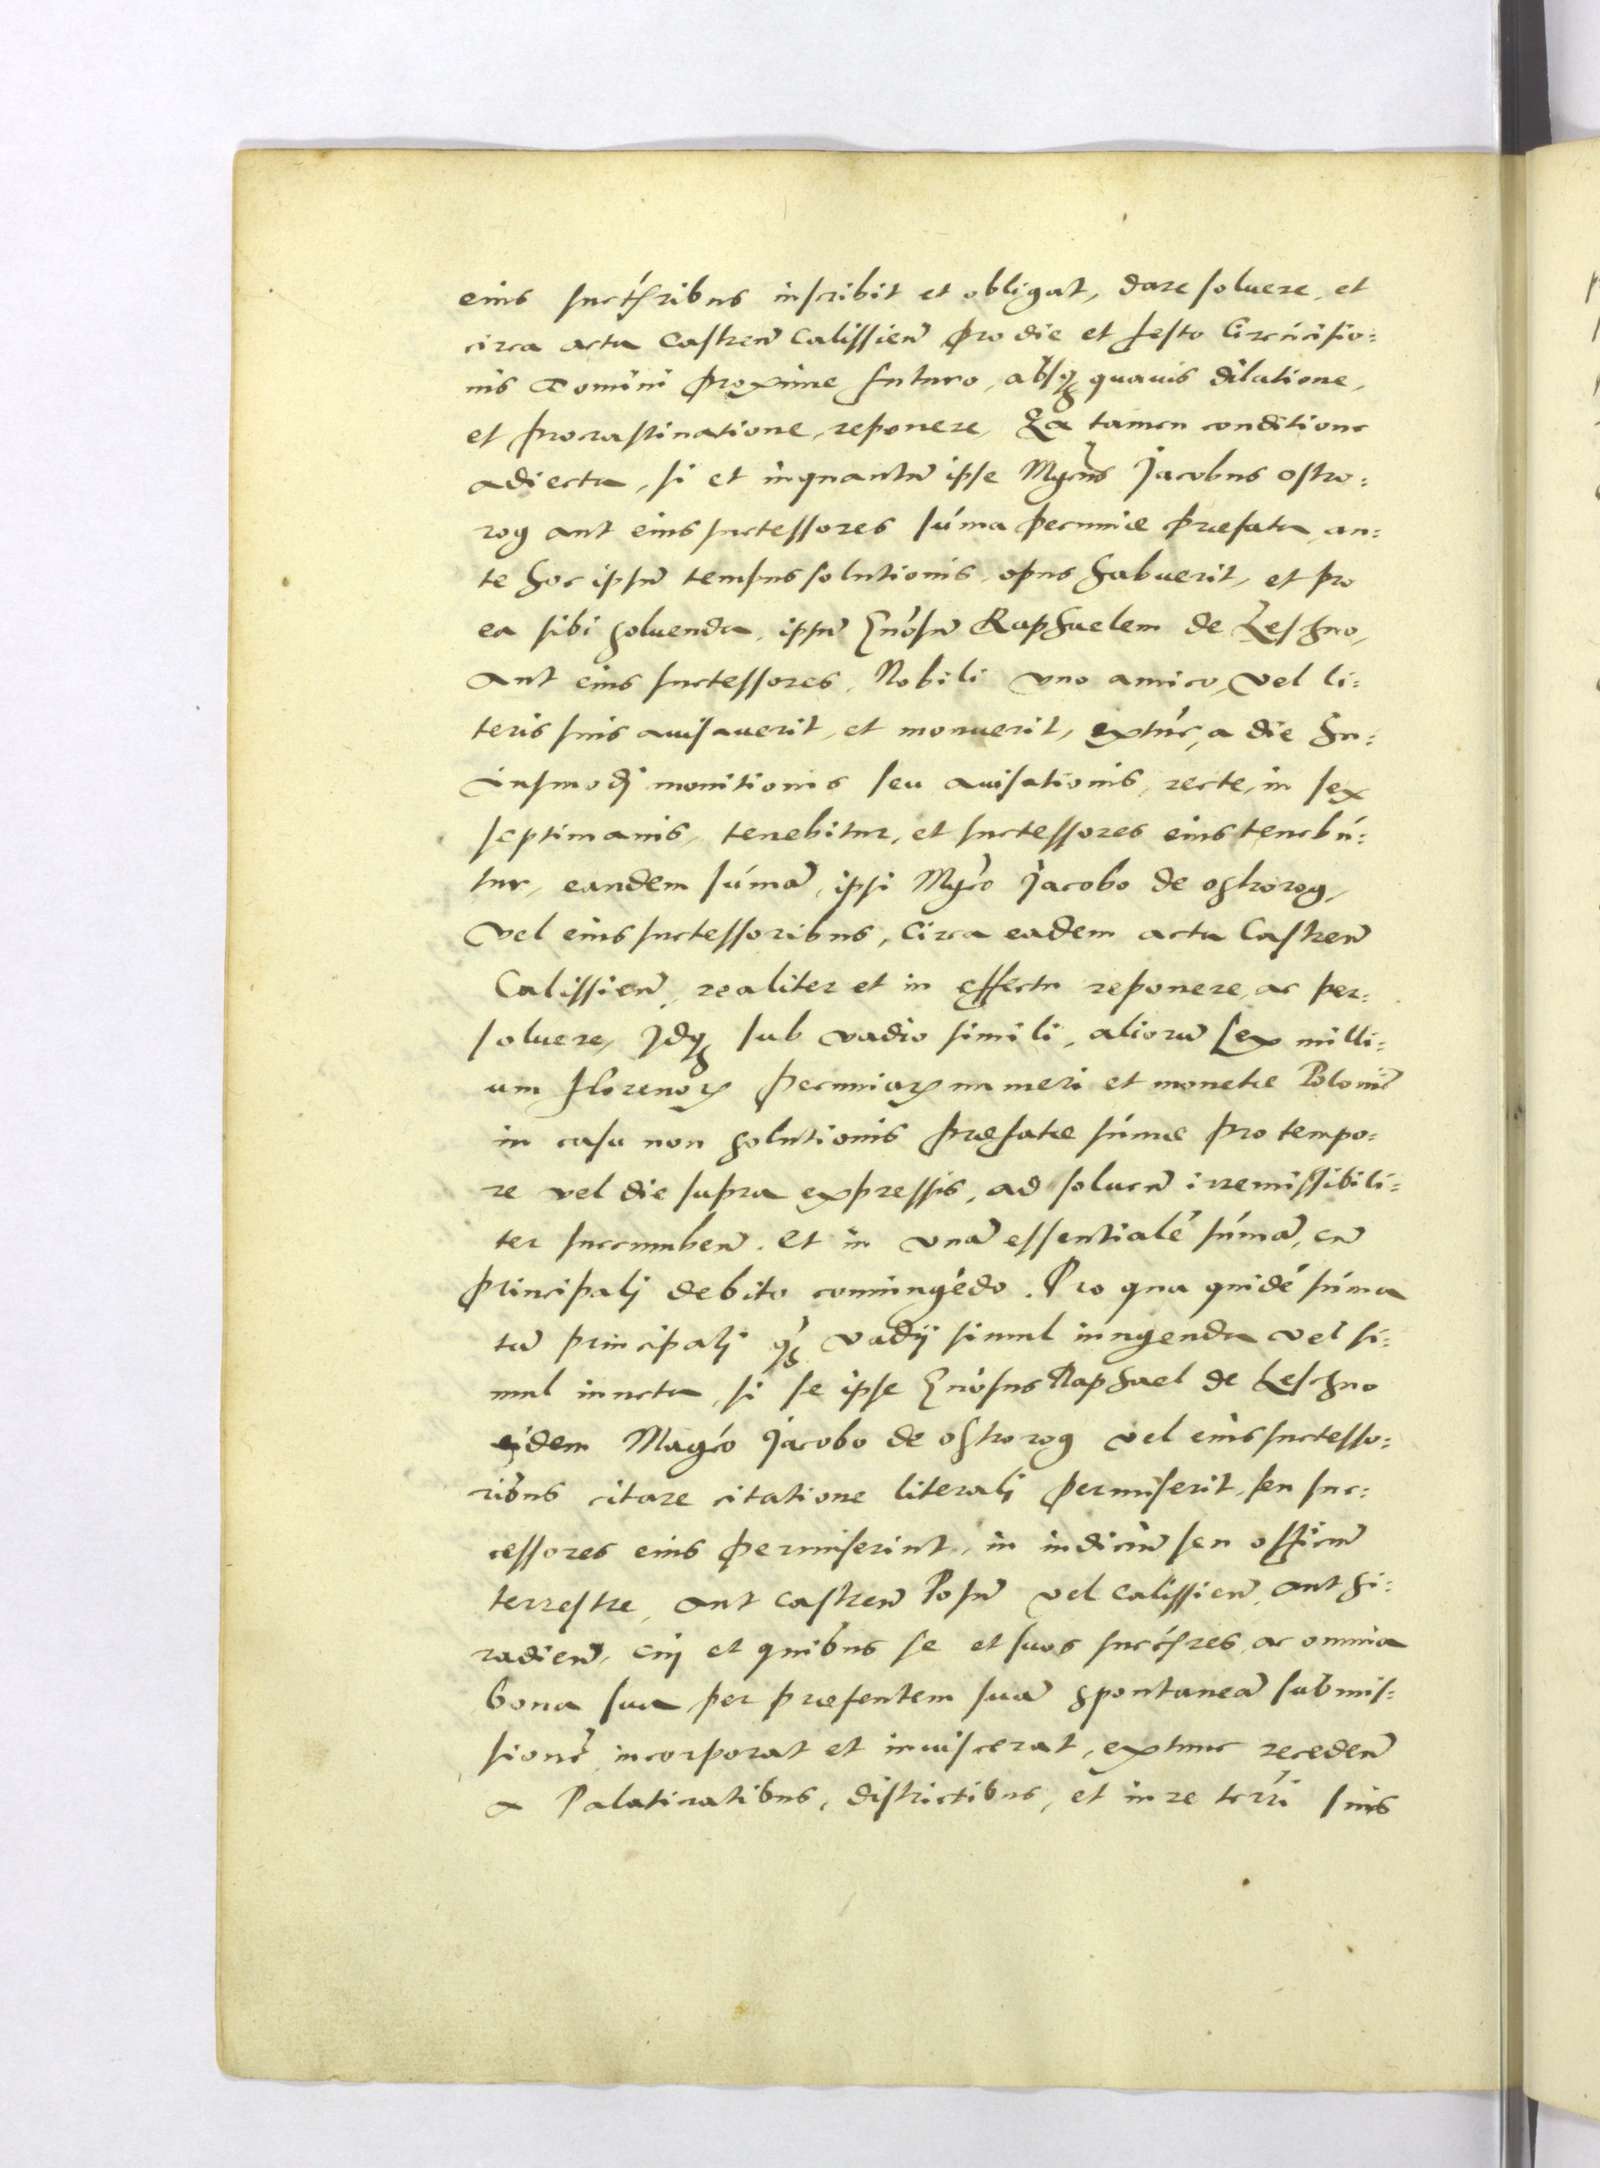 eius succ̃ribus inscribit et obligat, dare soluere, et
circa acta Castreñ Calissieñ pro die et festo Circũcisio:
nis Domini proxime futuro, absq; quauis dilatione,
et procrastinatione, reponere, Ea tamen conditione
adiecta, si et inquantũ ipse Mgcũs Jacobus Ostro:
rog aut eius successores sũma pecuniæ præfata, an:
te hoc ipsũ tempus solutionis, opus habuerit, et pro
ea sibi soluenda, ipsũ Gñosũ Raphaelem de Leschno,
Aut eius successores, Nobili vno amico, vel li:
teris suis auisauerit, et monuerit, extũc, a die hu:
iusmodj monitionis seu auisationis, recte, in sex
septimanis, tenebitur, et successores eius tenebũ:
tur, eandem sũmã, ipsi Mgcõ Jacobo de Ostrorog,
Vel eius successoribus, Circa eadem acta Castreñ
Calissieñ, realiter et in effectu reponere, ac per:
soluere, Jdq; sub vadio simili, aliorũ sex milli:
um florenoꝝ pecuniaꝝ numeri et monetæ Poloniẽ
in casu non solutionis præfatæ sũmæ pro tempo:
re vel die supra expressis, ad soluẽñ irremissibili:
ter succumbeñ. Et in vnã essentialẽ sũmã, cũ
principalj debito coniungẽdo. Pro qua quidẽ sũma
tã principalj q̃; vadij simul iungenda vel si:
mul iuncta, si se ipse Gñosus Raphael de Leschno
eidem Magcõ Jacobo de Ostrorog vel eius successo:
ribus citare citatione literalj permiserit, seu suc:
cessores eius permiserint, in iudiciũ seu officiũ
terrestre, aut Castreñ Posñ vel Calissieñ, aut Si:
radieñ, Cuj et quibus se et suos succ̃res, ac omnia
bona sua per præsentem suã spontaneã submis:
sionẽ incorporat et inuiscerat, extunc recedeñ
a Palatinatibus, districtibus, et iure terri suis